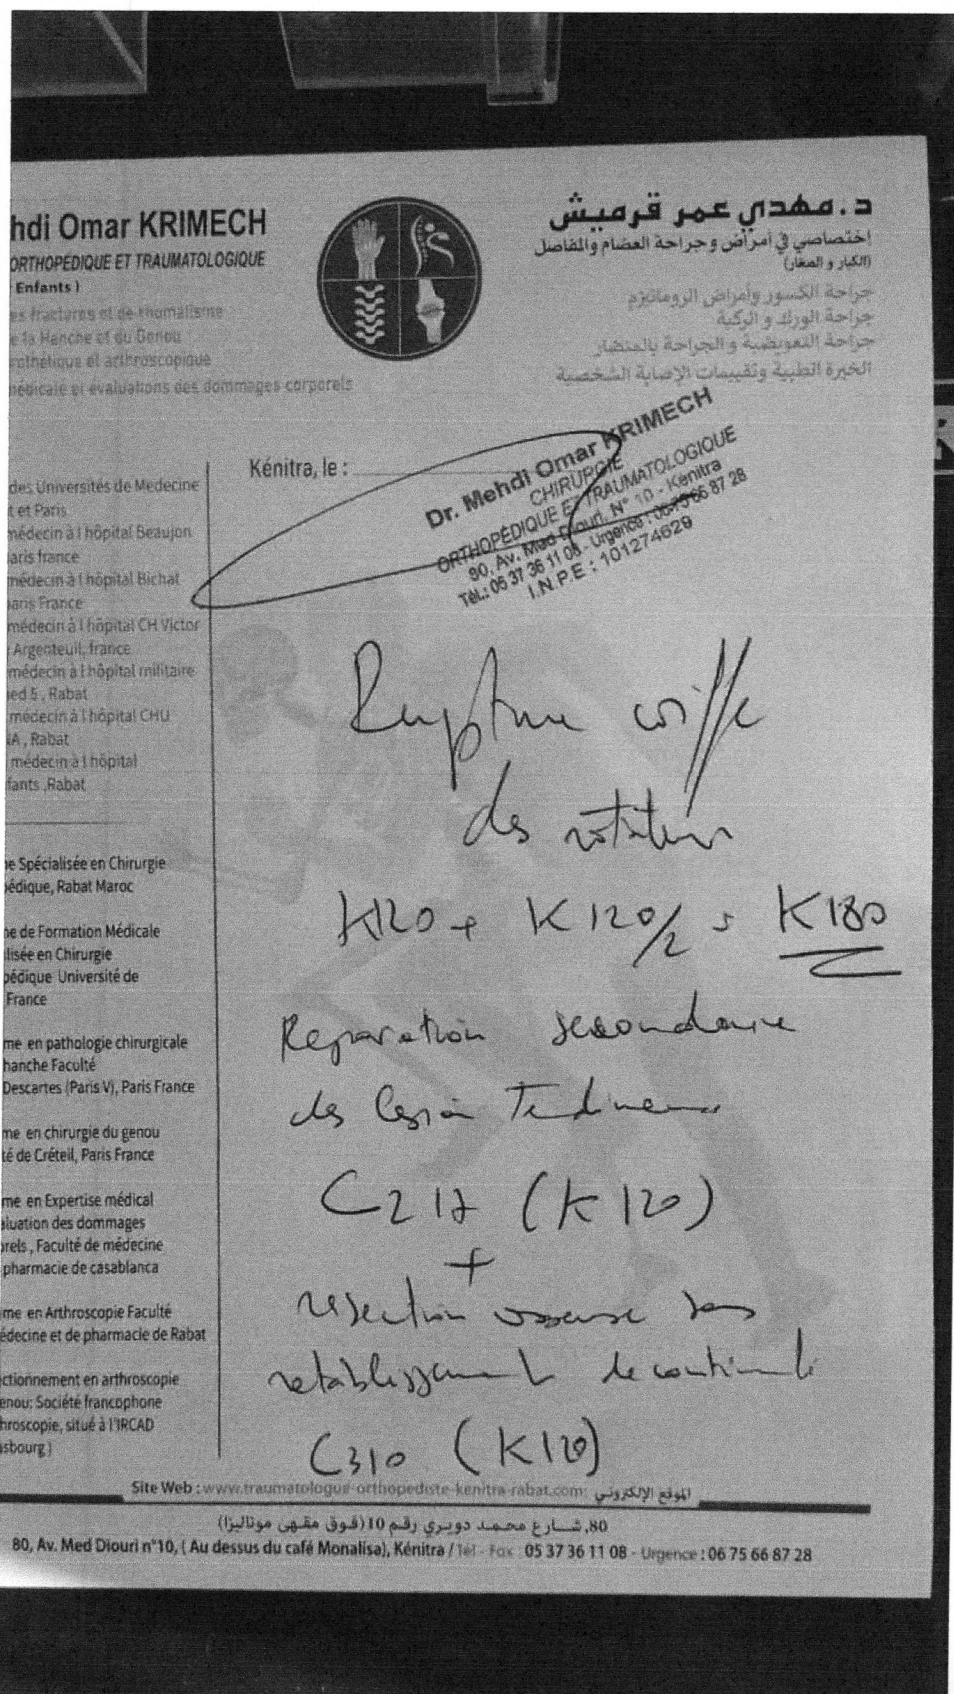 hdi Omar KRIMECH
ORTHOPÉDIQUE ET TRAUMATOLOGIQUE
Enfants )
es fractures et de rhumatisme
e la Hanche et du Genou
rothétique et arthroscopique
médicale et évaluations des dommages corporels
د.مهدي عمر قرميش
إختصاصي في أمراض وجراحة العضام والمفاصل
(الكبار و الصغار)
جراحة الكسور وأمراض الروماتيزم
جراحة الورك و الركبة
جراحة التعويضية و الجراحة بالمنضار
الخبرة الطبية وتقييمات الإصابة الشخصية
Kénitra, le :
Dr. Mehdi Omar KRIMECH
CHIRURGIE
ORTHOPÉDIQUE ET TRAUMATOLOGIQUE
80, Av. Med Diouri, N° 10 - Kénitra
Tél.: 05 37 36 11 08 - Urgence : 06 75 66 87 28
I.N.P.E : 101274629
des Universités de Medecine
t et Paris
médecin à l hôpital Beaujon
aris france
médecin à l hôpital Bichat
paris France
médecin à l hôpital CH Victor
Argenteuil, france
médecin à l hôpital militaire
ed 5 , Rabat
médecin à l hôpital CHU
IA , Rabat
médecin à l hôpital
fants ,Rabat
ne Spécialisée en Chirurgie
pédique, Rabat Maroc
ne de Formation Médicale
lisée en Chirurgie
pédique Université de
France
me en pathologie chirurgicale
hanche Faculté
Descartes (Paris V), Paris France
me en chirurgie du genou
té de Créteil, Paris France
me en Expertise médical
aluation des dommages
orels , Faculté de médecine
pharmacie de casablanca
me en Arthroscopie Faculté
édecine et de pharmacie de Rabat
ctionnement en arthroscopie
enou: Société francophone
hroscopie, situé à l'IRCAD
asbourg )
Rupture coiffe
des rotateurs
K120 + K120/2 = K180
Reparation secondaire
des lesion Tendineuse
C217 (K120)
+
resection osseuse sans
retablissement de continuité
C310 (K120)
Site Web : www.traumatologue-orthopediste-kenitra-rabat.com: الموقع الإلكتروني
80, شارع محمد دويري رقم 10 (فوق مقهى موناليزا)
80, Av. Med Diouri n°10, ( Au dessus du café Monalisa), Kénitra / Tél - Fax : 05 37 36 11 08 - Urgence : 06 75 66 87 28